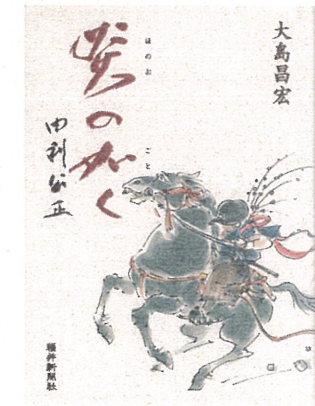 大島昌宏
炎の如く
ほのお ごと
由利公正
福井新聞社